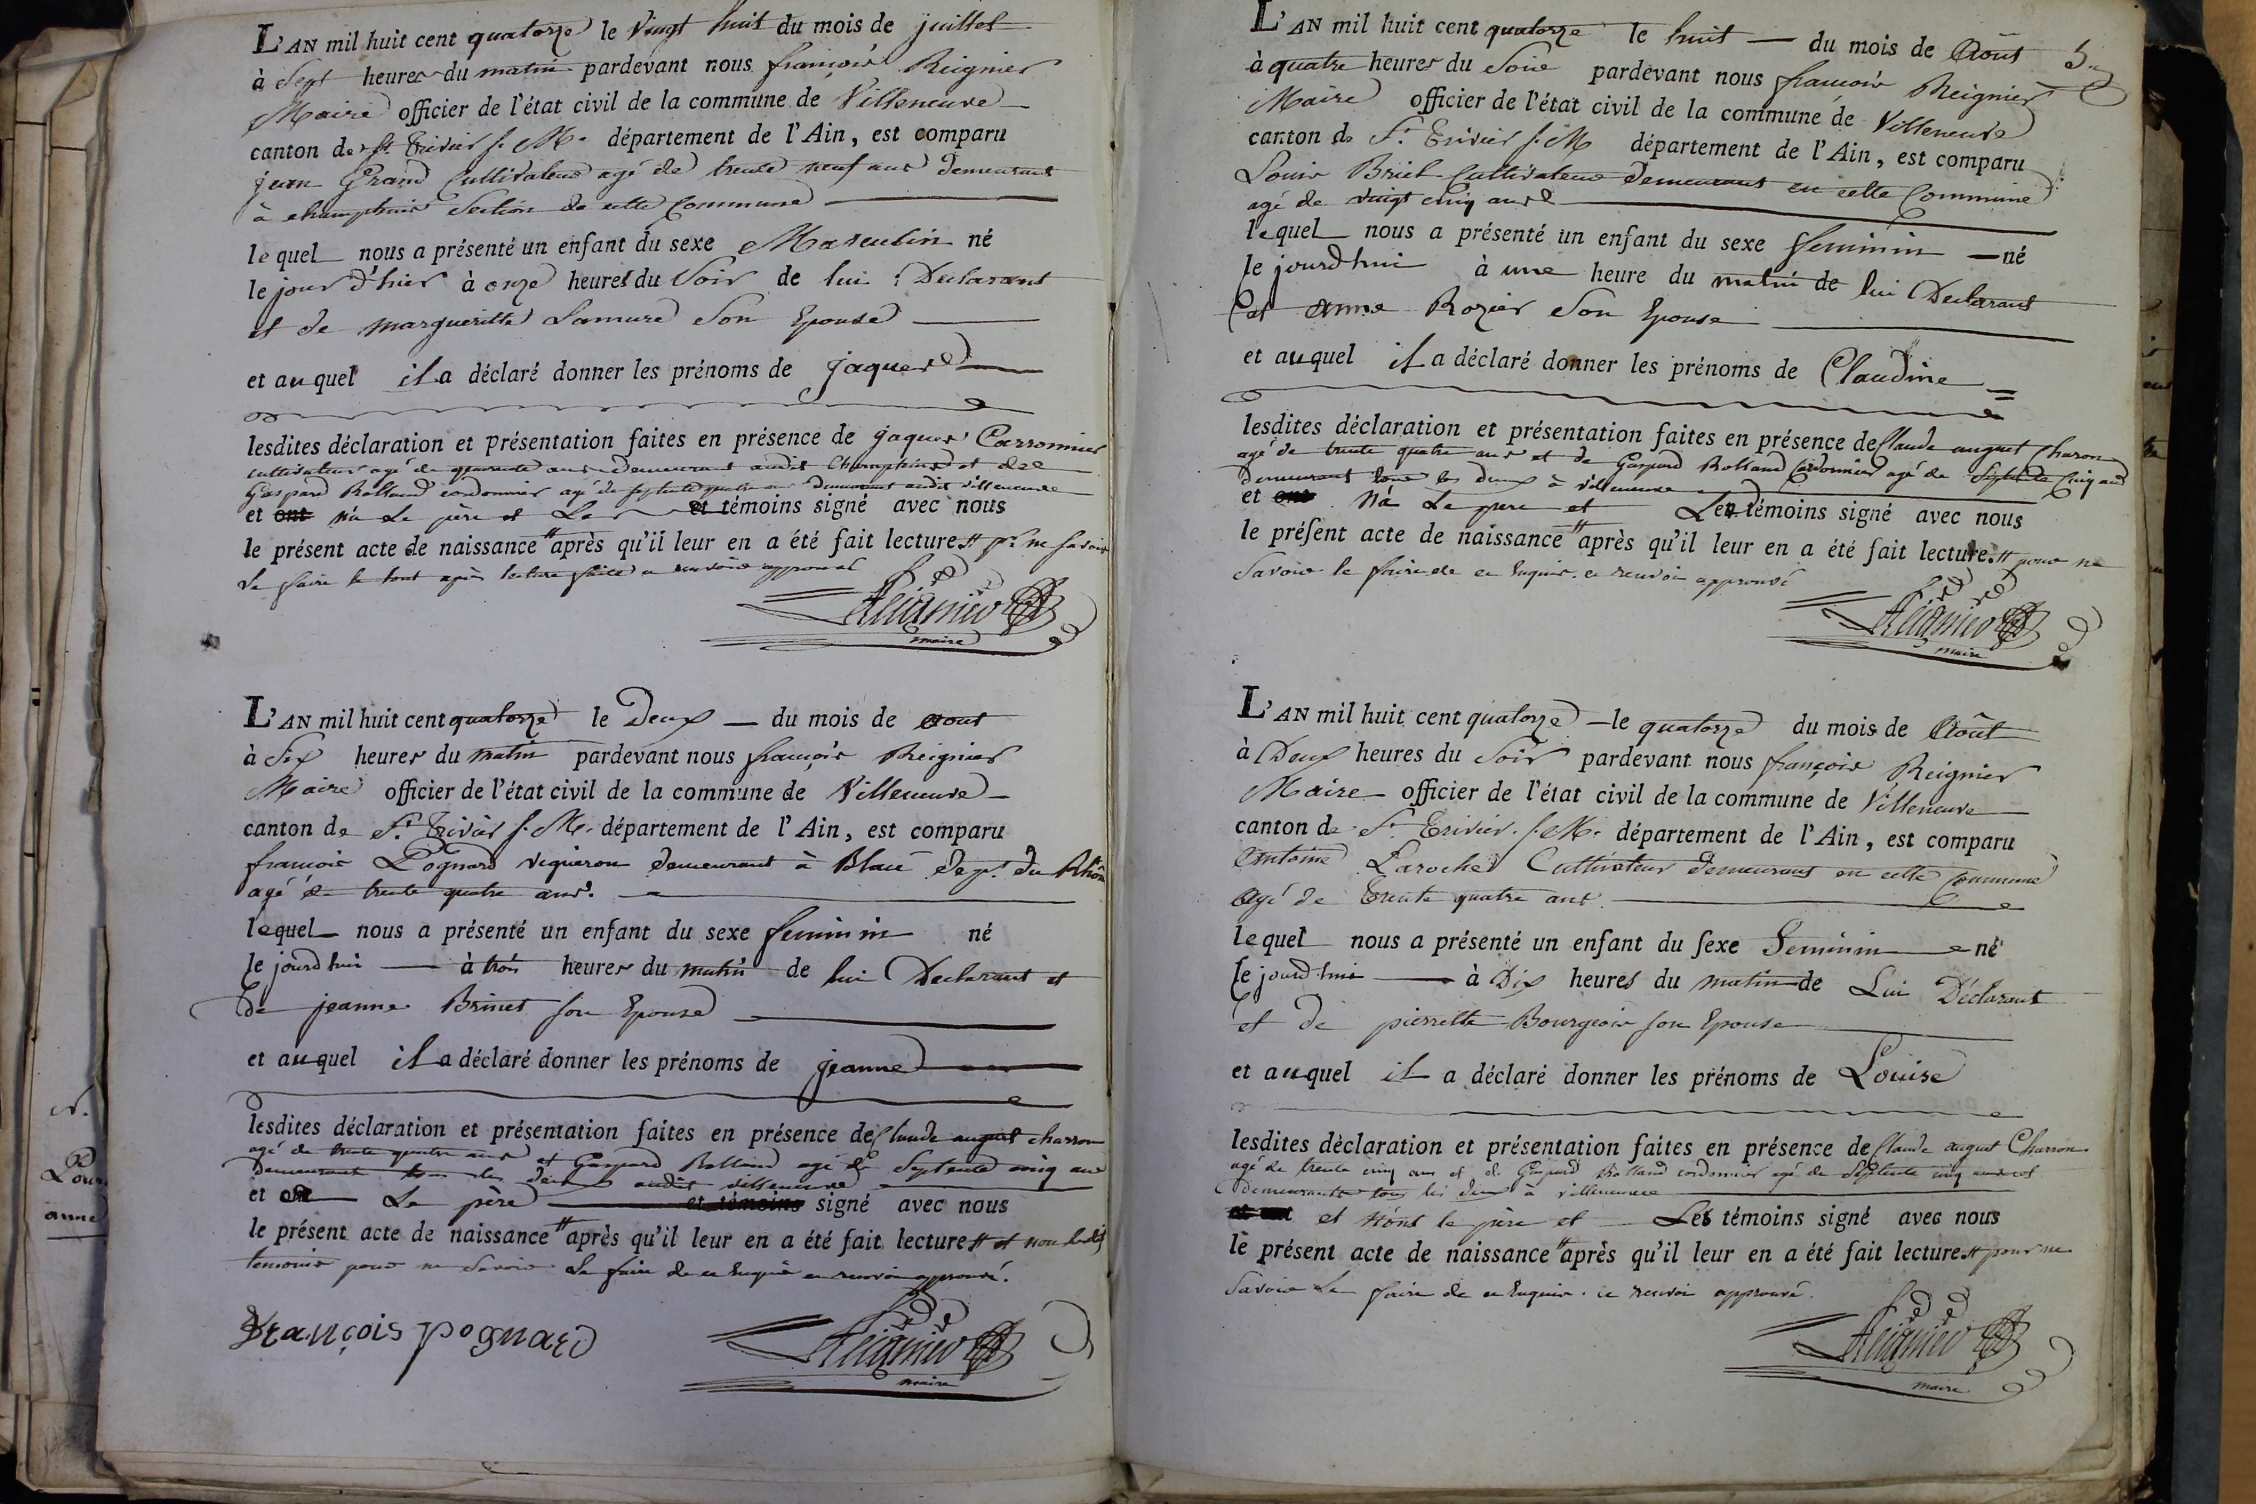 L'AN mil huit cent quatorze le vingt huit du mois de juillet
à sept heures du matin pardevant nous françois Reignier
Maire officier de l'état civil de la commune de Villeneuve
canton de St Trivier s. M. département de l'Ain, est comparu
jean Grand Cultivateur agé de trente neuf ans demeurant
à champhin Section de cette Commune
lequel nous a présenté un enfant du sexe Masculin né
le jour d'hier à onze heures du Soir de lui Declarant
et de margueritte Lamure Son Epouse
et auquel il a déclaré donner les prénoms de jaques
lesdites déclaration et présentation faites en présence de jaques Carronnier
cultivateur agé de quarante ans demeurant audit Champhin et de
Gaspard Rolland cordonnier agé de septente quatre ans demeurant audit villeneuve
et ont n'a Le père et Les et témoins signé avec nous
le présent acte de naissance après qu'il leur en a été fait lecture pr ne savoir
Le faire le tout après lecture faite renvoi approuvé
Reignier
maire
L'AN mil huit cent quatorze le Deux du mois de aout
à six heures du matin pardevant nous françois Reignier
Maire officier de l'état civil de la commune de Villeneuve
canton de St Trivier s. M. département de l'Ain, est comparu
françois Pognard vigneron demeurant à Blacé dept. du Rhône
agé de trente quatre ans.
lequel nous a présenté un enfant du sexe feminin né
le jourd'hui à trois heures du matin de lui Declarant et
de jeanne Brinet son Epouse
et auquel il a déclaré donner les prénoms de jeanne
lesdites déclaration et présentation faites en présence de Claude august charron
agé de trente quatre ans et Gaspard Rolland agé de Septente cinq ans
demeurant tous les deux audit villeneuve
et ont Le père et témoins signé avec nous
le présent acte de naissance après qu'il leur en a été fait lecture et non lesdits
temoins pour ne Savoir Le faire de ce Enquis ce renvoi approuvé.
François Pognard
Reignier
maire
5
L'AN mil huit cent quatorze le huit du mois de Août
à quatre heures du Soir pardevant nous françois Reignier
Maire officier de l'état civil de la commune de Villeneuve
canton de St Trivier s. M. département de l'Ain, est comparu
Louis Briel Cultivateur demeurant en cette Commune
agé de vingt cinq ans
lequel nous a présenté un enfant du sexe feminin né
le jourd'hui à une heure du matin de lui Declarant
et Anne Rozier Son Epouse
et auquel il a déclaré donner les prénoms de Claudine
lesdites déclaration et présentation faites en présence de Claude august Charon
agé de trente quatre ans et de Gaspard Rolland Cordonnier agé de Septente Cinq ans
demeurant tous les deux à villeneuve
et ont N'a Le pere et Les témoins signé avec nous
le présent acte de naissance après qu'il leur en a été fait lecture pour ne
Savoir le faire de ce Enquis. ce renvoi approuvé
Reignier
maire
L'AN mil huit cent quatorze le quatorze du mois de Août
à Deux heures du Soir pardevant nous françois Reignier
Maire officier de l'état civil de la commune de Villeneuve
canton de St Trivier. s. M. département de l'Ain, est comparu
Antoine Laroche Cultivateur demeurant en cette Commune
Agé de trente quatre ans
lequel nous a présenté un enfant du sexe Feminin né
le jourd'hui à Dix heures du matin de Lui Déclarant
et de pierrette Bourgeois son Epouse
et auquel il a déclaré donner les prénoms de Louise
lesdites déclaration et présentation faites en présence de Claude august Charron
agé de trente cinq ans et de Gaspard Rolland cordonnier agé de Septente cinq ans
demeurants tous les deux à villeneuve
et ont et n'ont le père et Les témoins signé avec nous
le présent acte de naissance après qu'il leur en a été fait lecture pour ne
Savoir Le faire de ce Enquis. ce renvoi approuvé.
Reignier
maire